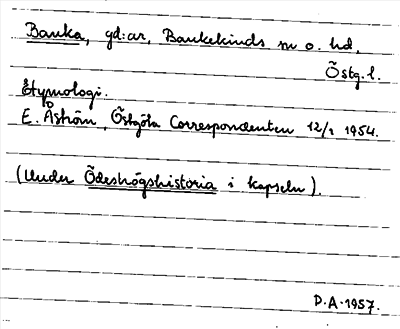 Banka, gd:ar, Bankekinds sn o. hd,
Östg.l.
Etymologi.
E. Åström, Östgöta Correspondenten 12/1 1954.
(Under Ödeshögshistoria i kapseln).
D.A. 1957.